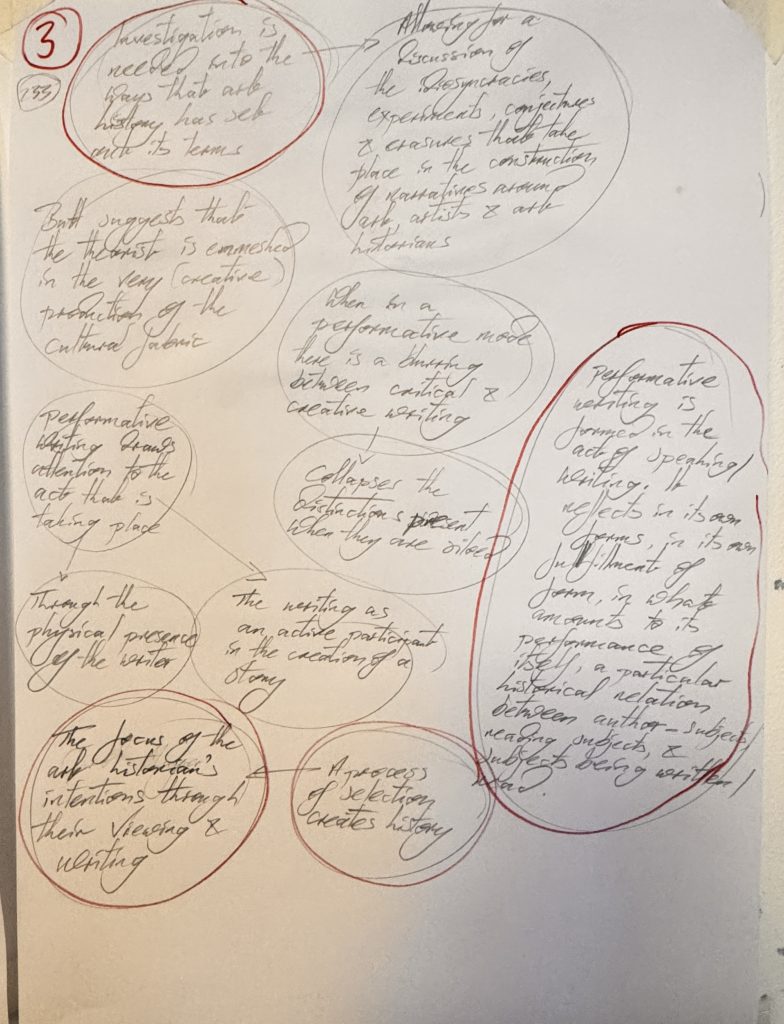 3
133
Investigation is
needed into the
ways that art
history has set
out its terms
Allowing for a
discussion of
the idiosyncracies,
experiments, conjectures
& erasures that take
place in the construction
of narratives around
art, artists & art
historians
Butt suggests that
the theorist is enmeshed
in the very (creative)
production of the
cultural fabric
When in a
performative mode
there is a blurring
between critical &
creative writing
Performative
writing draws
attention to the
act that is
taking place
Collapses the
distinctions present
when they are siloed
Performative
writing is
formed in the
act of speaking/
writing. It
reflects in its own
forms, in its own
fulfillment of
form, in what
amounts to its
performance of
itself, a particular
historical relation
between author-subjects/
reading subjects, &
subjects being written/
read.
Through the
physical presence
of the writer
The writing as
an active participant
in the creation of a
story
The focus of the
art historian's
intentions through
their viewing &
writing
A process
of selection
creates history